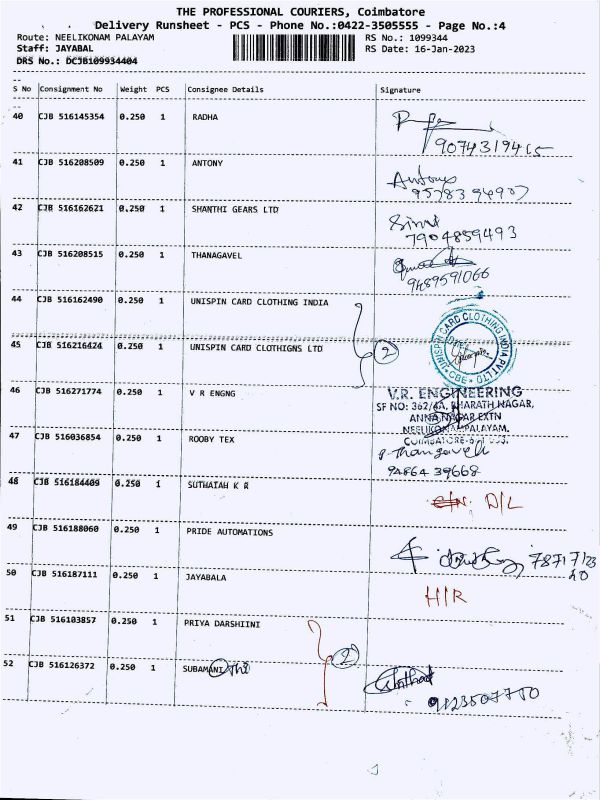 THE PROFESSIONAL COURIERS, Coimbatore
Delivery Runsheet - PCS - Phone No.:0422-3505555 - Page No.:4
Route: NEELIKONAM PALAYAM RS No.: 1099344
Staff: JAYABAL RS Date: 16-Jan-2023
DRS No.: DCJB109934404
S No Consignment No Weight PCS Consignee Details Signature
40 CJB 516145354 0.250 1 RADHA
9074319415
41 CJB 516208509 0.250 1 ANTONY
Antony
42 CJB 516162621 0.250 1 SHANTHI GEARS LTD
7904859493
43 CJB 516208515 0.250 1 THANAGAVEL
9489591066
44 CJB 516162490 0.250 1 UNISPIN CARD CLOTHING INDIA
UNISPIN CARD CLOTHING INDIA PVT LTD * CBE *
45 CJB 516216424 0.250 1 UNISPIN CARD CLOTHIGNS LTD 2
46 CJB 516271774 0.250 1 V R ENGNG
V.R. ENGINEERING
SF NO: 362/4A, BHARATH NAGAR,
ANNA NAGAR EXTN
NEELIKONAMPALAYAM,
COIMBATORE
47 CJB 516036854 0.250 1 ROOBY TEX
P. Thangavel
94864 39668
48 CJB 516184409 0.250 1 SUTHAIAH K R
D/L
49 CJB 516188060 0.250 1 PRIDE AUTOMATIONS
50 CJB 516187111 0.250 1 JAYABALA
H/R
51 CJB 516103857 0.250 1 PRIYA DARSHIINI
2
52 CJB 516126372 0.250 1 SUBAMANI
9123507750